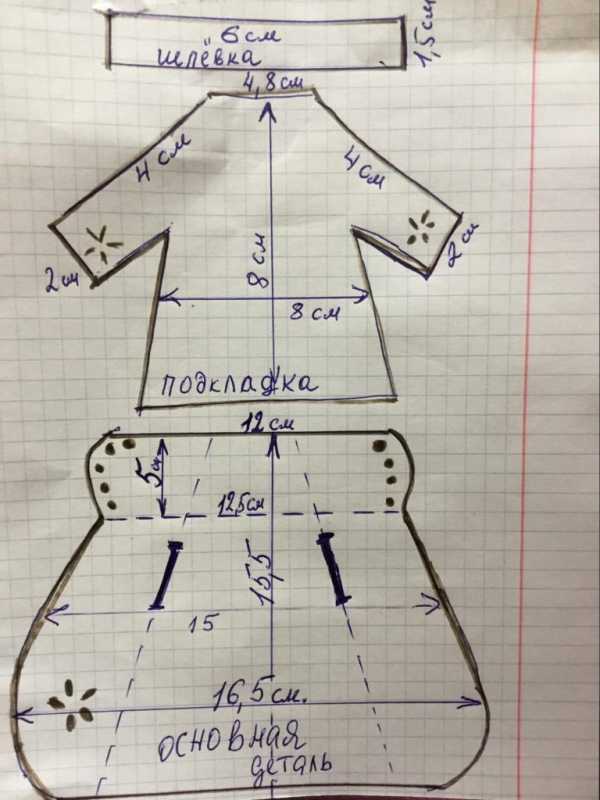 6 см
1,5 см
шлёвка
4,8 см
4 см
4 см
2 см
2 см
8 см
8 см
подкладка
12 см
5 см
12,5 см
15,5
15
16,5 см.
основная
деталь